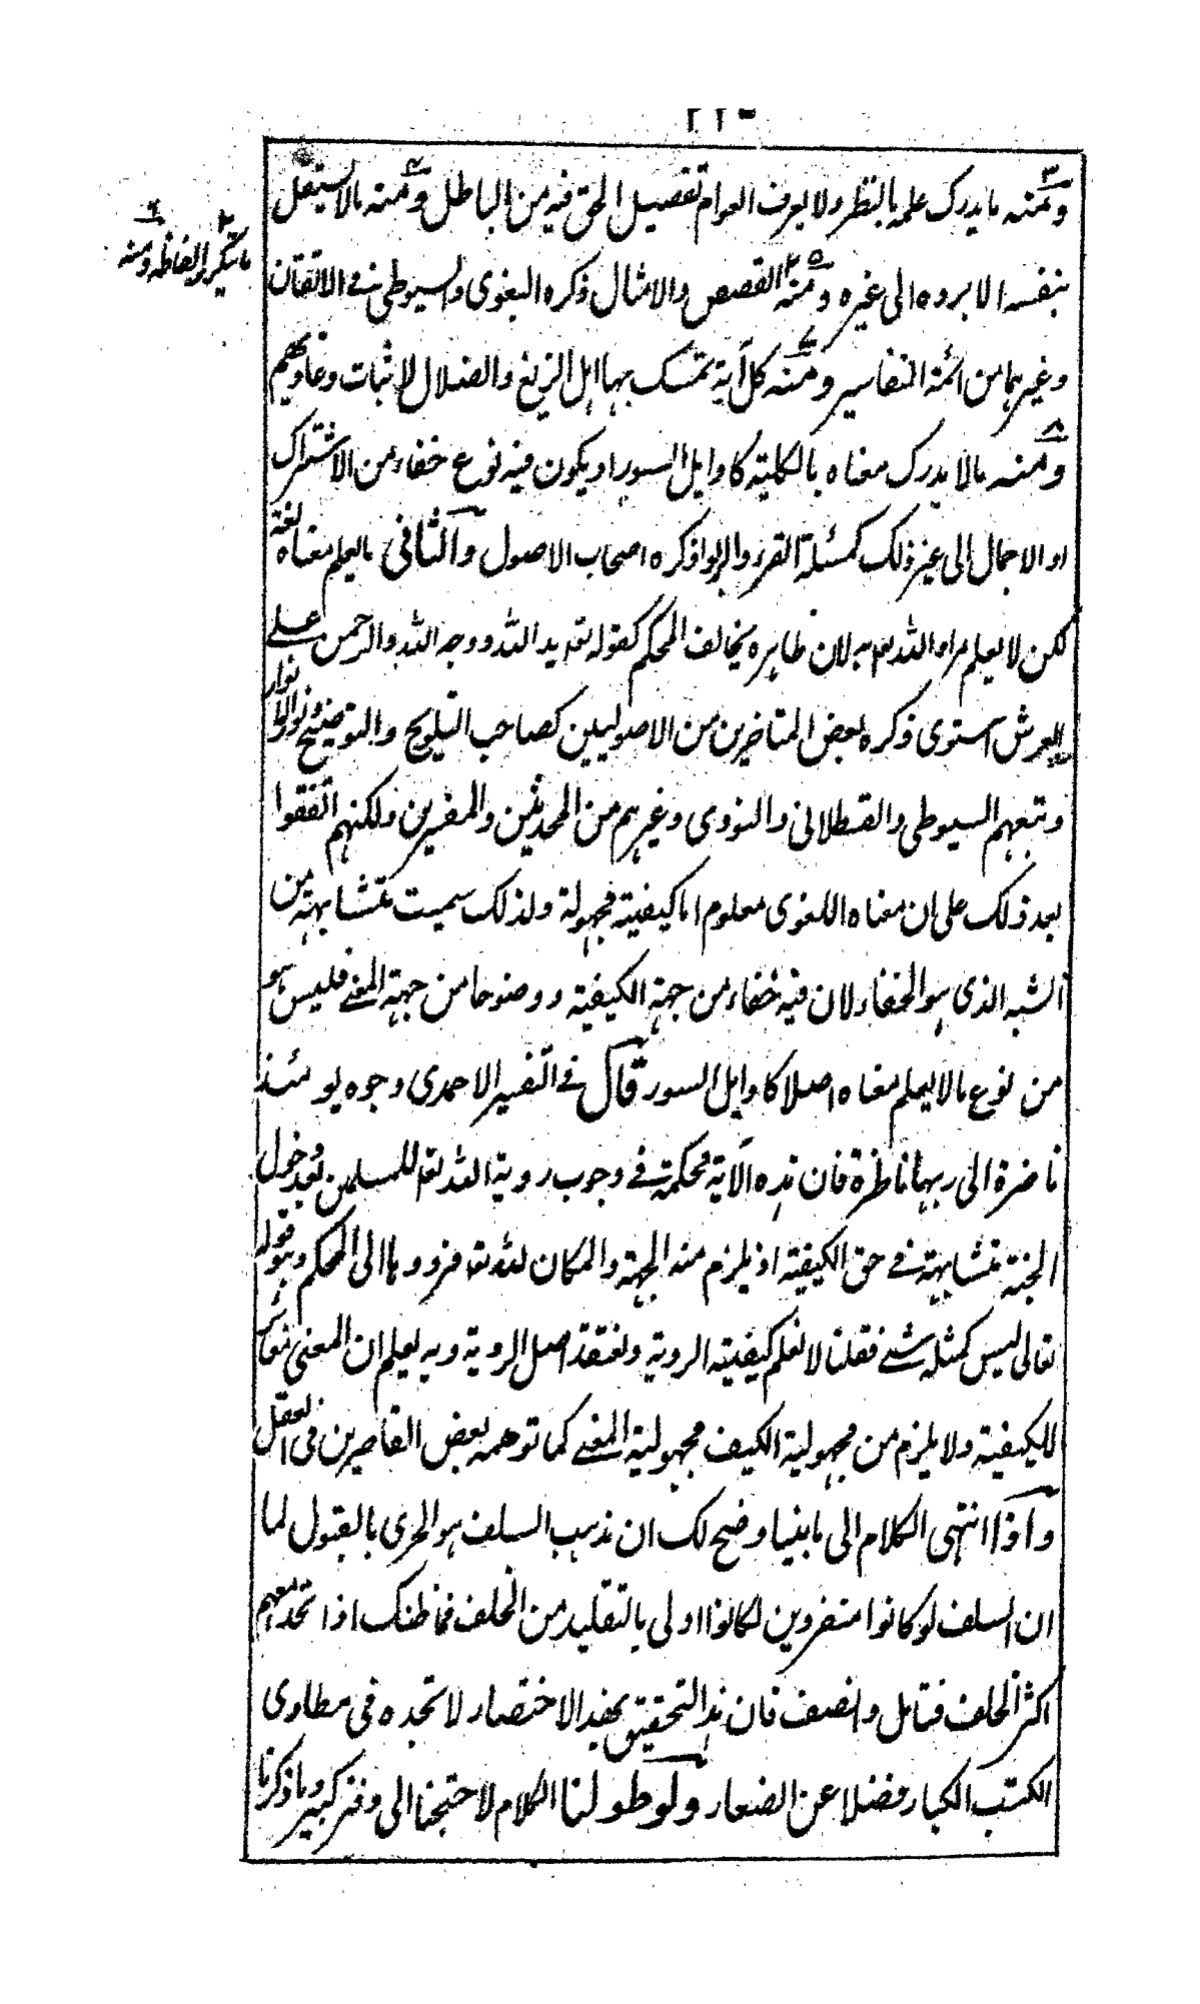 ومنه ما يدرك علمه بالنظر ولا يعرف العوام تفصيل الحق فيه من الباطل ومنه مالا يستقل
ما يتكرر الفاظه ومنه
بنفسه الا برده الى غيره ومنه القصص والامثال ذكره البغوى والسيوطى فى الاتقان
وغيرهما من ائمة التفاسير ومنه كل آية تمسك بها اهل الزيغ والضلال لاثبات دعاويهم
ومنه مالا يدرك معناه بالكلية كاوايل السور او يكون فيه نوع خفاء من الاشتراك
او الاجمال الى غير ذلك كمسئلة القرء والربوا ذكره اصحاب الاصول والثانى مايعلم معناه لغة
لكن لا يعلم مراد الله به لان ظاهره يخالف المحكم كقوله تع يد الله ووجه الله والرحمن على
العرش استوى ذكره بعض المتاخرين من الاصوليين كصاحب التلويح والتوضيح ونور الانوار
وتبعهم السيوطى والقسطلانى والنووى وغيرهم من المحدثين والمفسرين ولكنهم اتفقوا
بعد ذلك على ان معناه اللغوى معلوم اما كيفيته مجهولة ولذلك سميت متشابهة من
الشبه الذى هو الخفاء لان فيه خفاء من جهة الكيفية ووضوحا من جهة المعنے فليس هو
من نوع مالا يعلم معناه اصلا كاوايل السور قال فے التفسير الاحمدى وجوه يومئذ
ناضرة الى ربها ناظرة فان هذه الآية محكمة فے وجوب روية الله تع للمسلمين بعد دخول
الجنة متشابهة فے حق الكيفية اذ يلزم منه الجهة والمكان لله تع فرددها الى المحكم وهو قوله
تعالى ليس كمثله شئ فقلنا لا نعلم كيفية الروية ونعتقد اصل الروية وبه يعلم ان المعنى مغاير
للكيفية ولا يلزم من مجهولية الكيف مجهولية المعنے كما توهمه بعض القاصرين فى العقل
واذا انتهى الكلام الى ما بنينا وضح لك ان مذهب السلف هو الحرى بالقبول لما
ان السلف لو كانوا منفردين لكانوا اولى بالتقليد من الخلف فما ظنك اذا اتحد معهم
اكثر الخلف فتامل وانصف فان هذا التحقيق بهذا الاختصار لا تجده فى مطاوى
الكتب الكبار فضلا عن الصغار ولو طولنا الكلام لاحتجنا الى دفتر كبير وما ذكرنا